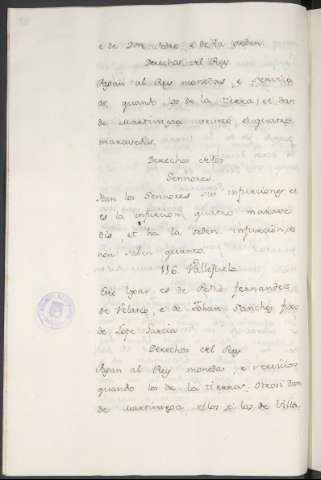 e de Don Pedro e de la orden.
Derechos del Rey
Pagan al Rey monedas, e servicios
quando los de la tierra; et dan
de martiniega veinte e quatro
maravedis.
Derechos de los
Sennores.
Dan los Sennores sus infurciones et
es la infurcion quatro marave
dis, et ha la orden infurcion, e
non saben quanta
116. Vallejuelo
Este logar es de Pedro Fernandes
de Velasco, e de Johan Sanchez fijo
de Lope Garcia
Derechos del Rey
Pagan al Rey monedas, e servicios
quando los de la tierra. Otrosi dan
de martiniega ellos e los de Villa